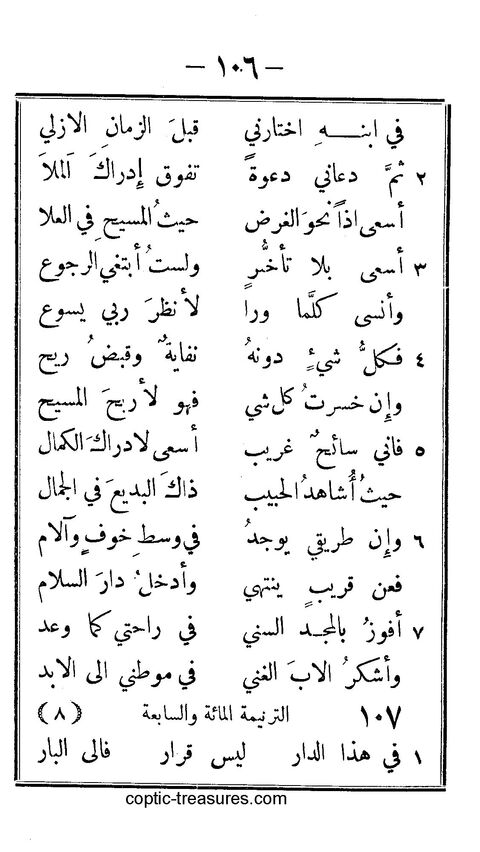 – ١٠٦ –
في ابنهِ اختارني قبلَ الزمانِ الازلي
٢ ثمَّ دعاني دعوةً تفوق إدراكَ الملَا
أسعى اذاً نحوَ الغرض حيثُ المسيح في العلا
٣ أسعى بلا تأخُّرٍ ولستُ أبتغي الرجوع
وأنسى كلَّما ورا لأنظرَ ربي يسوع
٤ فكلُّ شيءٍ دونهُ نفايةٌ وقبضُ ريح
وإن خسرتُ كل شي فهو لأربحَ المسيح
٥ فاني سائحٌ غريب أسعى لادراكَ الكمال
حيثُ أُشاهدُ الحبيب ذاكَ البديعَ في الجمال
٦ وإن طريقي يوجدُ في وسطِ خوفٍ وآلام
فعن قريبٍ ينتهي وأدخلُ دارَ السلام
٧ أفوزُ بالمجد السني في راحتي كما وعد
وأشكرُ الابَ الغني في موطني الى الابد
١٠٧ الترنيمة المائة والسابعة (٨)
١ في هذا الدار ليس قرار فالى البار
coptic-treasures.com